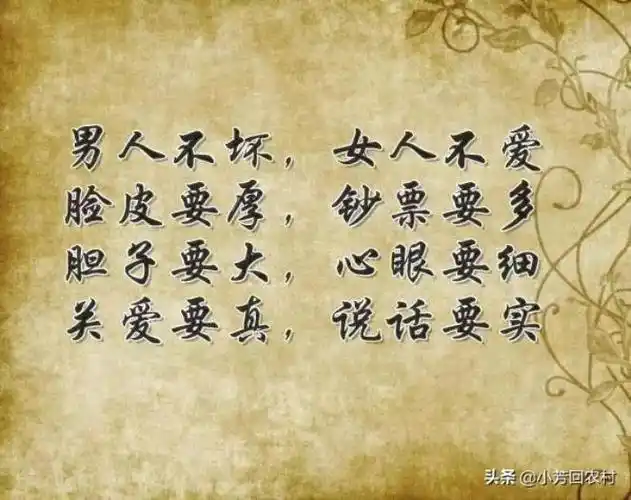 男人不坏，女人不爱
脸皮要厚，钞票要多
胆子要大，心眼要细
关爱要真，说话要实
头条 @小芳回农村